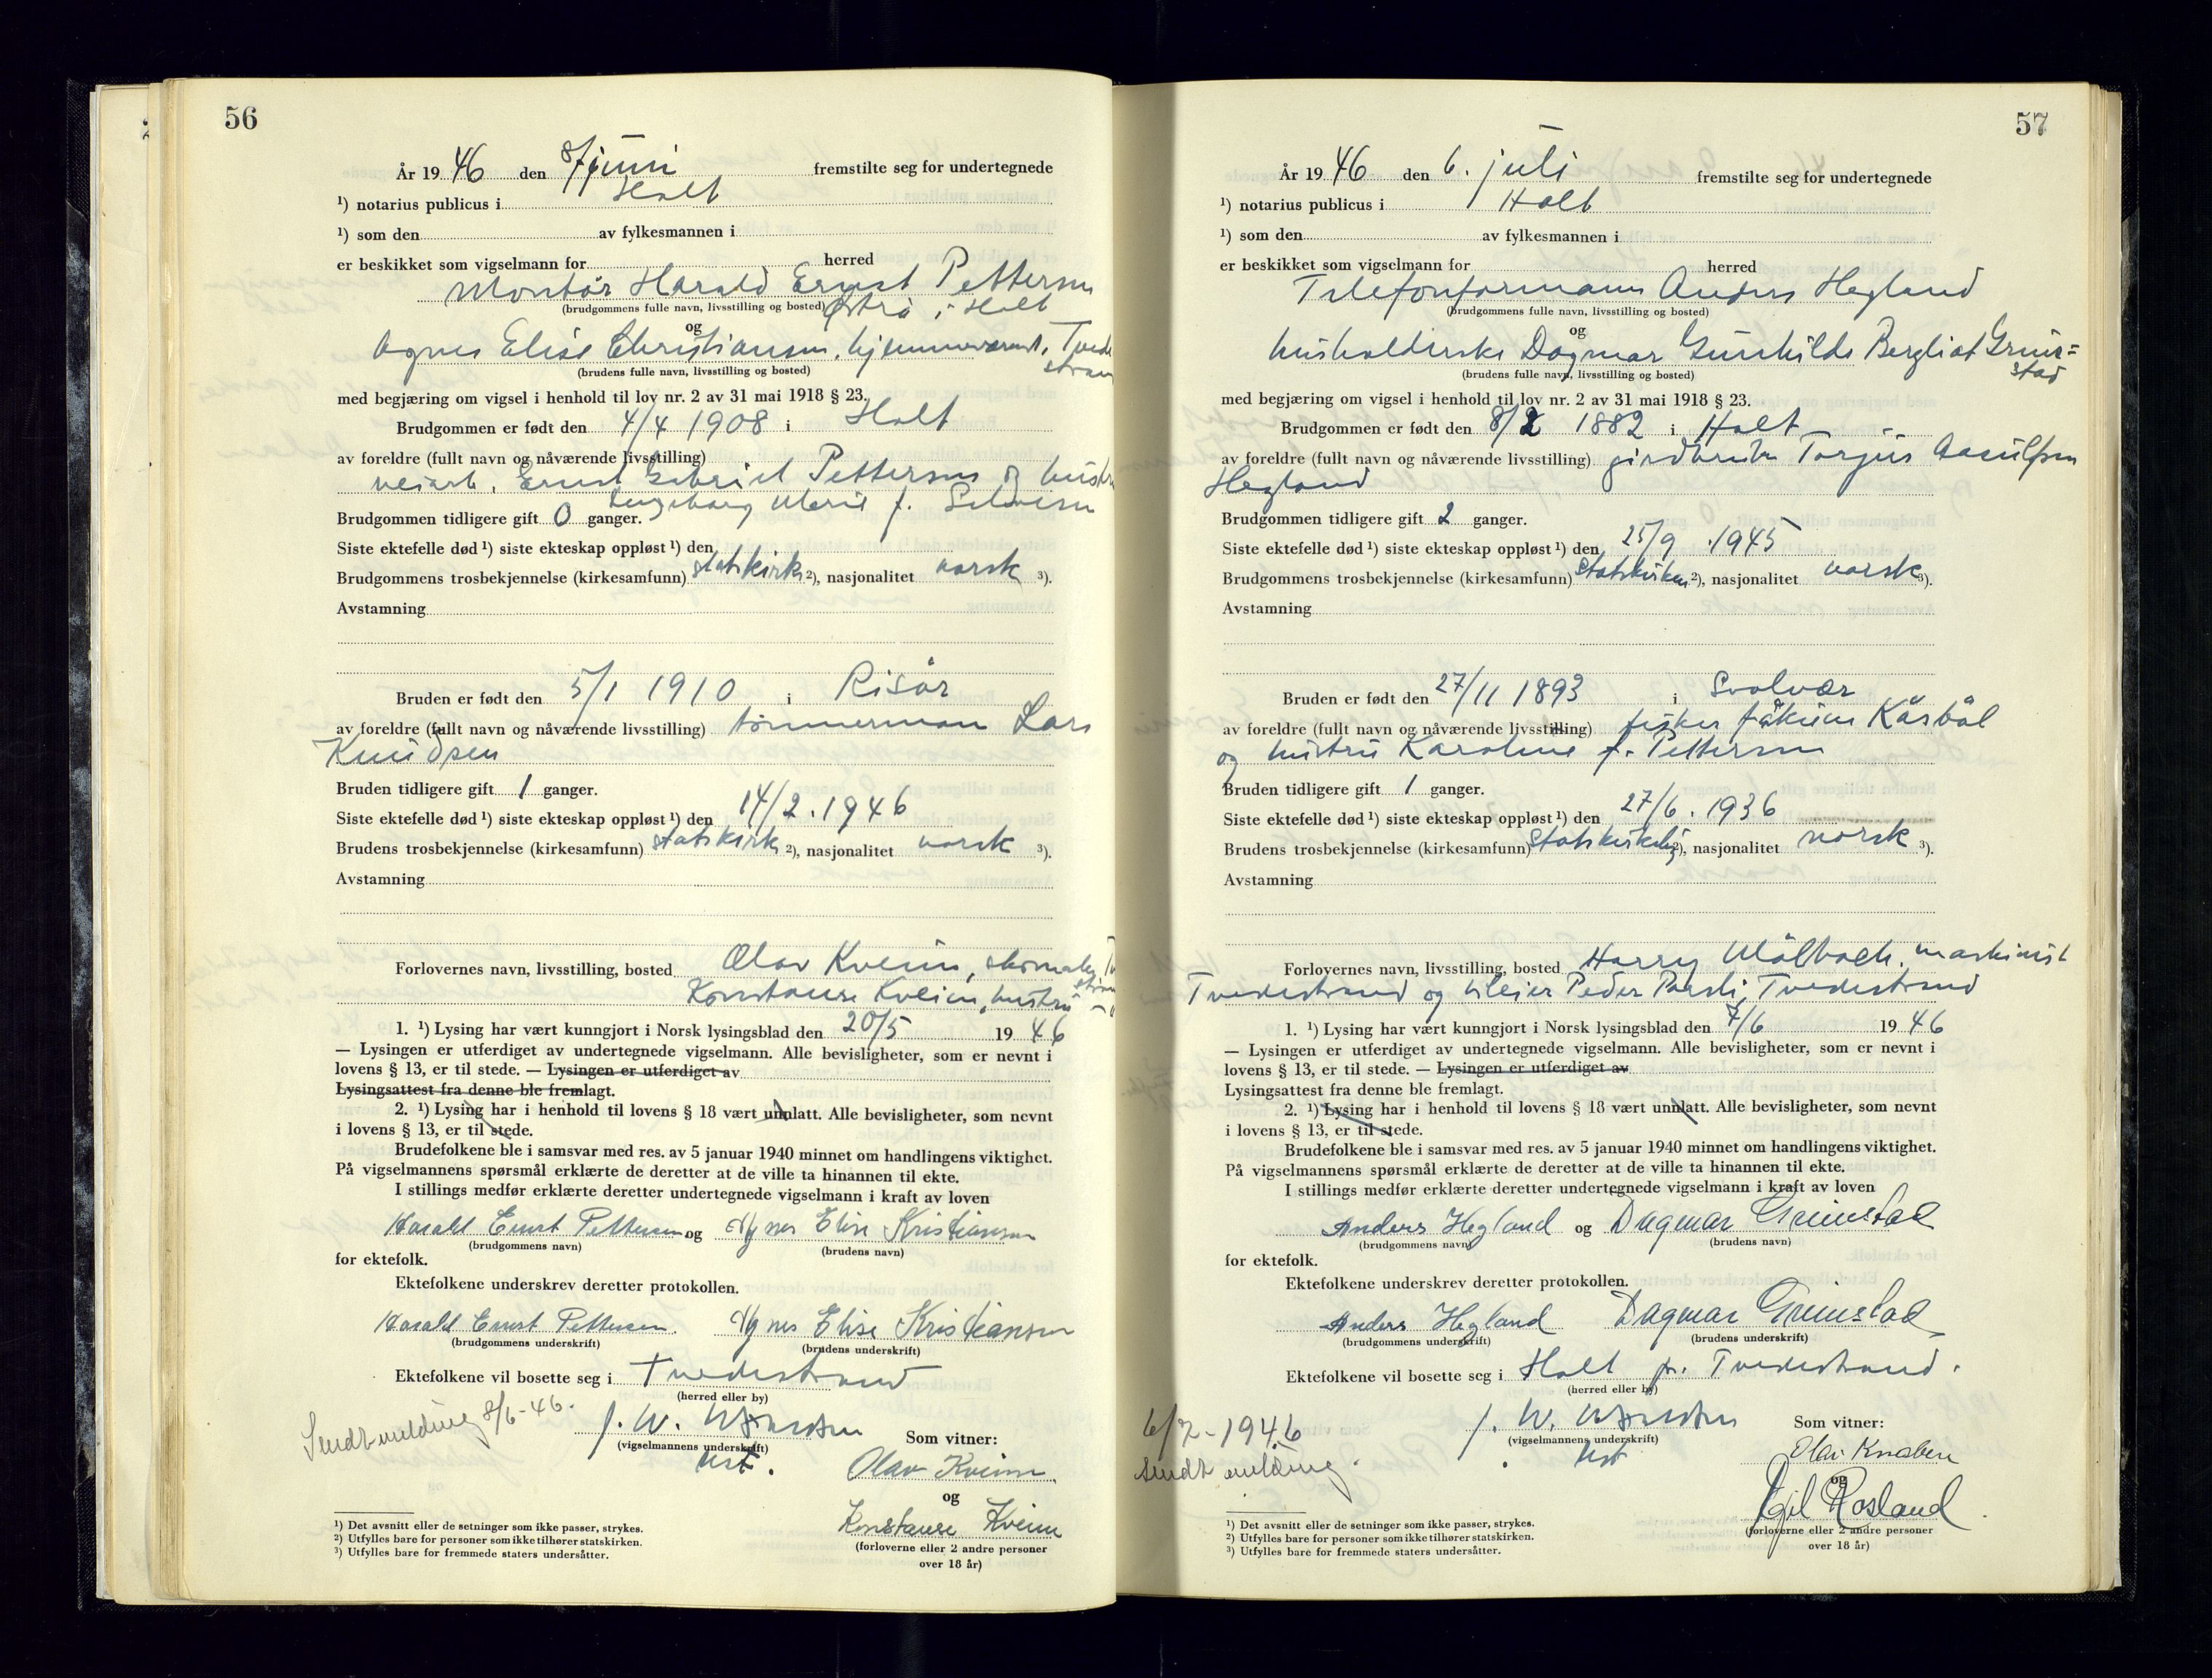 56
År 19 46 den 8/juni fremstilte seg for undertegnede
¹) notarius publicus i Holt
¹) som den av fylkesmannen i
er beskikket som vigselmann for herred
Montør Harald Ernst Pettersen
(brudgommens fulle navn, livsstilling og bosted) Østrå i Holt
og
Agnes Elise Christiansen, hjemmeværende, Tvede
(brudens fulle navn, livsstilling og bosted) stran
med begjæring om vigsel i henhold til lov nr. 2 av 31 mai 1918 § 23.
Brudgommen er født den 4/4 1908 i Holt
av foreldre (fullt navn og nåværende livsstilling)
veiarb. Ernst Gabriel Pettersen og hustru
Ingeborg Marie f.
Brudgommen tidligere gift 0 ganger.
Siste ektefelle død ¹) siste ekteskap oppløst ¹) den
Brudgommens trosbekjennelse (kirkesamfunn) statskirk ²), nasjonalitet norsk ³).
Avstamning
Bruden er født den 5/1 1910 i Risør
av foreldre (fullt navn og nåværende livsstilling) tømmermann Lars
Knudsen
Bruden tidligere gift 1 ganger.
Siste ektefelle død ¹) siste ekteskap oppløst ¹) den 14/2. 1946
Brudens trosbekjennelse (kirkesamfunn) statskirk ²), nasjonalitet norsk ³).
Avstamning
Forlovernes navn, livsstilling, bosted Olav Kveim, skomaker,
Konstanse Kveim, hustru
1. ¹) Lysing har vært kunngjort i Norsk lysingsblad den 20/5 19 46
— Lysingen er utferdiget av undertegnede vigselmann. Alle bevisligheter, som er nevnt i
lovens § 13, er til stede. — Lysingen er utferdiget av
Lysingsattest fra denne ble fremlagt.
2. ¹) Lysing har i henhold til lovens § 18 vært unnlatt. Alle bevisligheter, som nevnt
i lovens § 13, er til stede.
Brudefolkene ble i samsvar med res. av 5 januar 1940 minnet om handlingens viktighet.
På vigselmannens spørsmål erklærte de deretter at de ville ta hinannen til ekte.
I stillings medfør erklærte deretter undertegnede vigselmann i kraft av loven
Harald Ernst Pettersen og Agnes Elise Kristiansen
(brudgommens navn) (brudens navn)
for ektefolk.
Ektefolkene underskrev deretter protokollen.
Harald Ernst Pettersen Agnes Elise Kristiansen
(brudgommens underskrift) (brudens underskrift)
Ektefolkene vil bosette seg i Tvedestrand
(herred eller by)
Sendt melding 8/6-46. J. W.
(vigselmannens underskrift) Som vitner:
Olav Kveim
og
Konstanse Kveim
(forloverne eller 2 andre personer
over 18 år)
¹) Det avsnitt eller de setninger som ikke passer, strykes.
²) Utfylles bare for personer som ikke tilhører statskirken.
³) Utfylles bare for fremmede staters undersåtter.
57
År 19 46 den 6. juli fremstilte seg for undertegnede
¹) notarius publicus i Holt
¹) som den av fylkesmannen i
er beskikket som vigselmann for herred
Telefonformann Anders Hegland
(brudgommens fulle navn, livsstilling og bosted)
og
husholderske Dagmar Gunhilde Bergliot Grim=
(brudens fulle navn, livsstilling og bosted) stad
med begjæring om vigsel i henhold til lov nr. 2 av 31 mai 1918 § 23.
Brudgommen er født den 8/2 1882 i Holt
av foreldre (fullt navn og nåværende livsstilling) gårdbruker Torjus Aasulfsen
Hegland
Brudgommen tidligere gift 2 ganger.
Siste ektefelle død ¹) siste ekteskap oppløst ¹) den 25/9 1945
Brudgommens trosbekjennelse (kirkesamfunn) Statskirken ²), nasjonalitet norsk ³).
Avstamning
Bruden er født den 27/11 1893 i Svolvær
av foreldre (fullt navn og nåværende livsstilling) fisker Jåkim Kårbøl
og hustru Karoline f. Pettersen
Bruden tidligere gift 1 ganger.
Siste ektefelle død ¹) siste ekteskap oppløst ¹) den 27/6. 1936
Brudens trosbekjennelse (kirkesamfunn) Statskirkelig ²), nasjonalitet norsk ³).
Avstamning
Forlovernes navn, livsstilling, bosted Harry Mølbach, maskinist
Tvedestrand og Peder, Tvedestrand
1. ¹) Lysing har vært kunngjort i Norsk lysingsblad den 7/6 19 46
— Lysingen er utferdiget av undertegnede vigselmann. Alle bevisligheter, som er nevnt i
lovens § 13, er til stede. — Lysingen er utferdiget av
Lysingsattest fra denne ble fremlagt.
2. ¹) Lysing har i henhold til lovens § 18 vært unnlatt. Alle bevisligheter, som nevnt
i lovens § 13, er til stede.
Brudefolkene ble i samsvar med res. av 5 januar 1940 minnet om handlingens viktighet.
På vigselmannens spørsmål erklærte de deretter at de ville ta hinannen til ekte.
I stillings medfør erklærte deretter undertegnede vigselmann i kraft av loven
Anders Hegland og Dagmar Grimstad
(brudgommens navn) (brudens navn)
for ektefolk.
Ektefolkene underskrev deretter protokollen.
Anders Hegland Dagmar Grimstad
(brudgommens underskrift) (brudens underskrift)
Ektefolkene vil bosette seg i Holt pr. Tvedestrand.
(herred eller by)
6/7-1946 J. W. Som vitner:
sendt melding. (vigselmannens underskrift)
Olav Knaben
og
Egil Rosland
(forloverne eller 2 andre personer
over 18 år)
¹) Det avsnitt eller de setninger som ikke passer, strykes.
²) Utfylles bare for personer som ikke tilhører statskirken.
³) Utfylles bare for fremmede staters undersåtter.